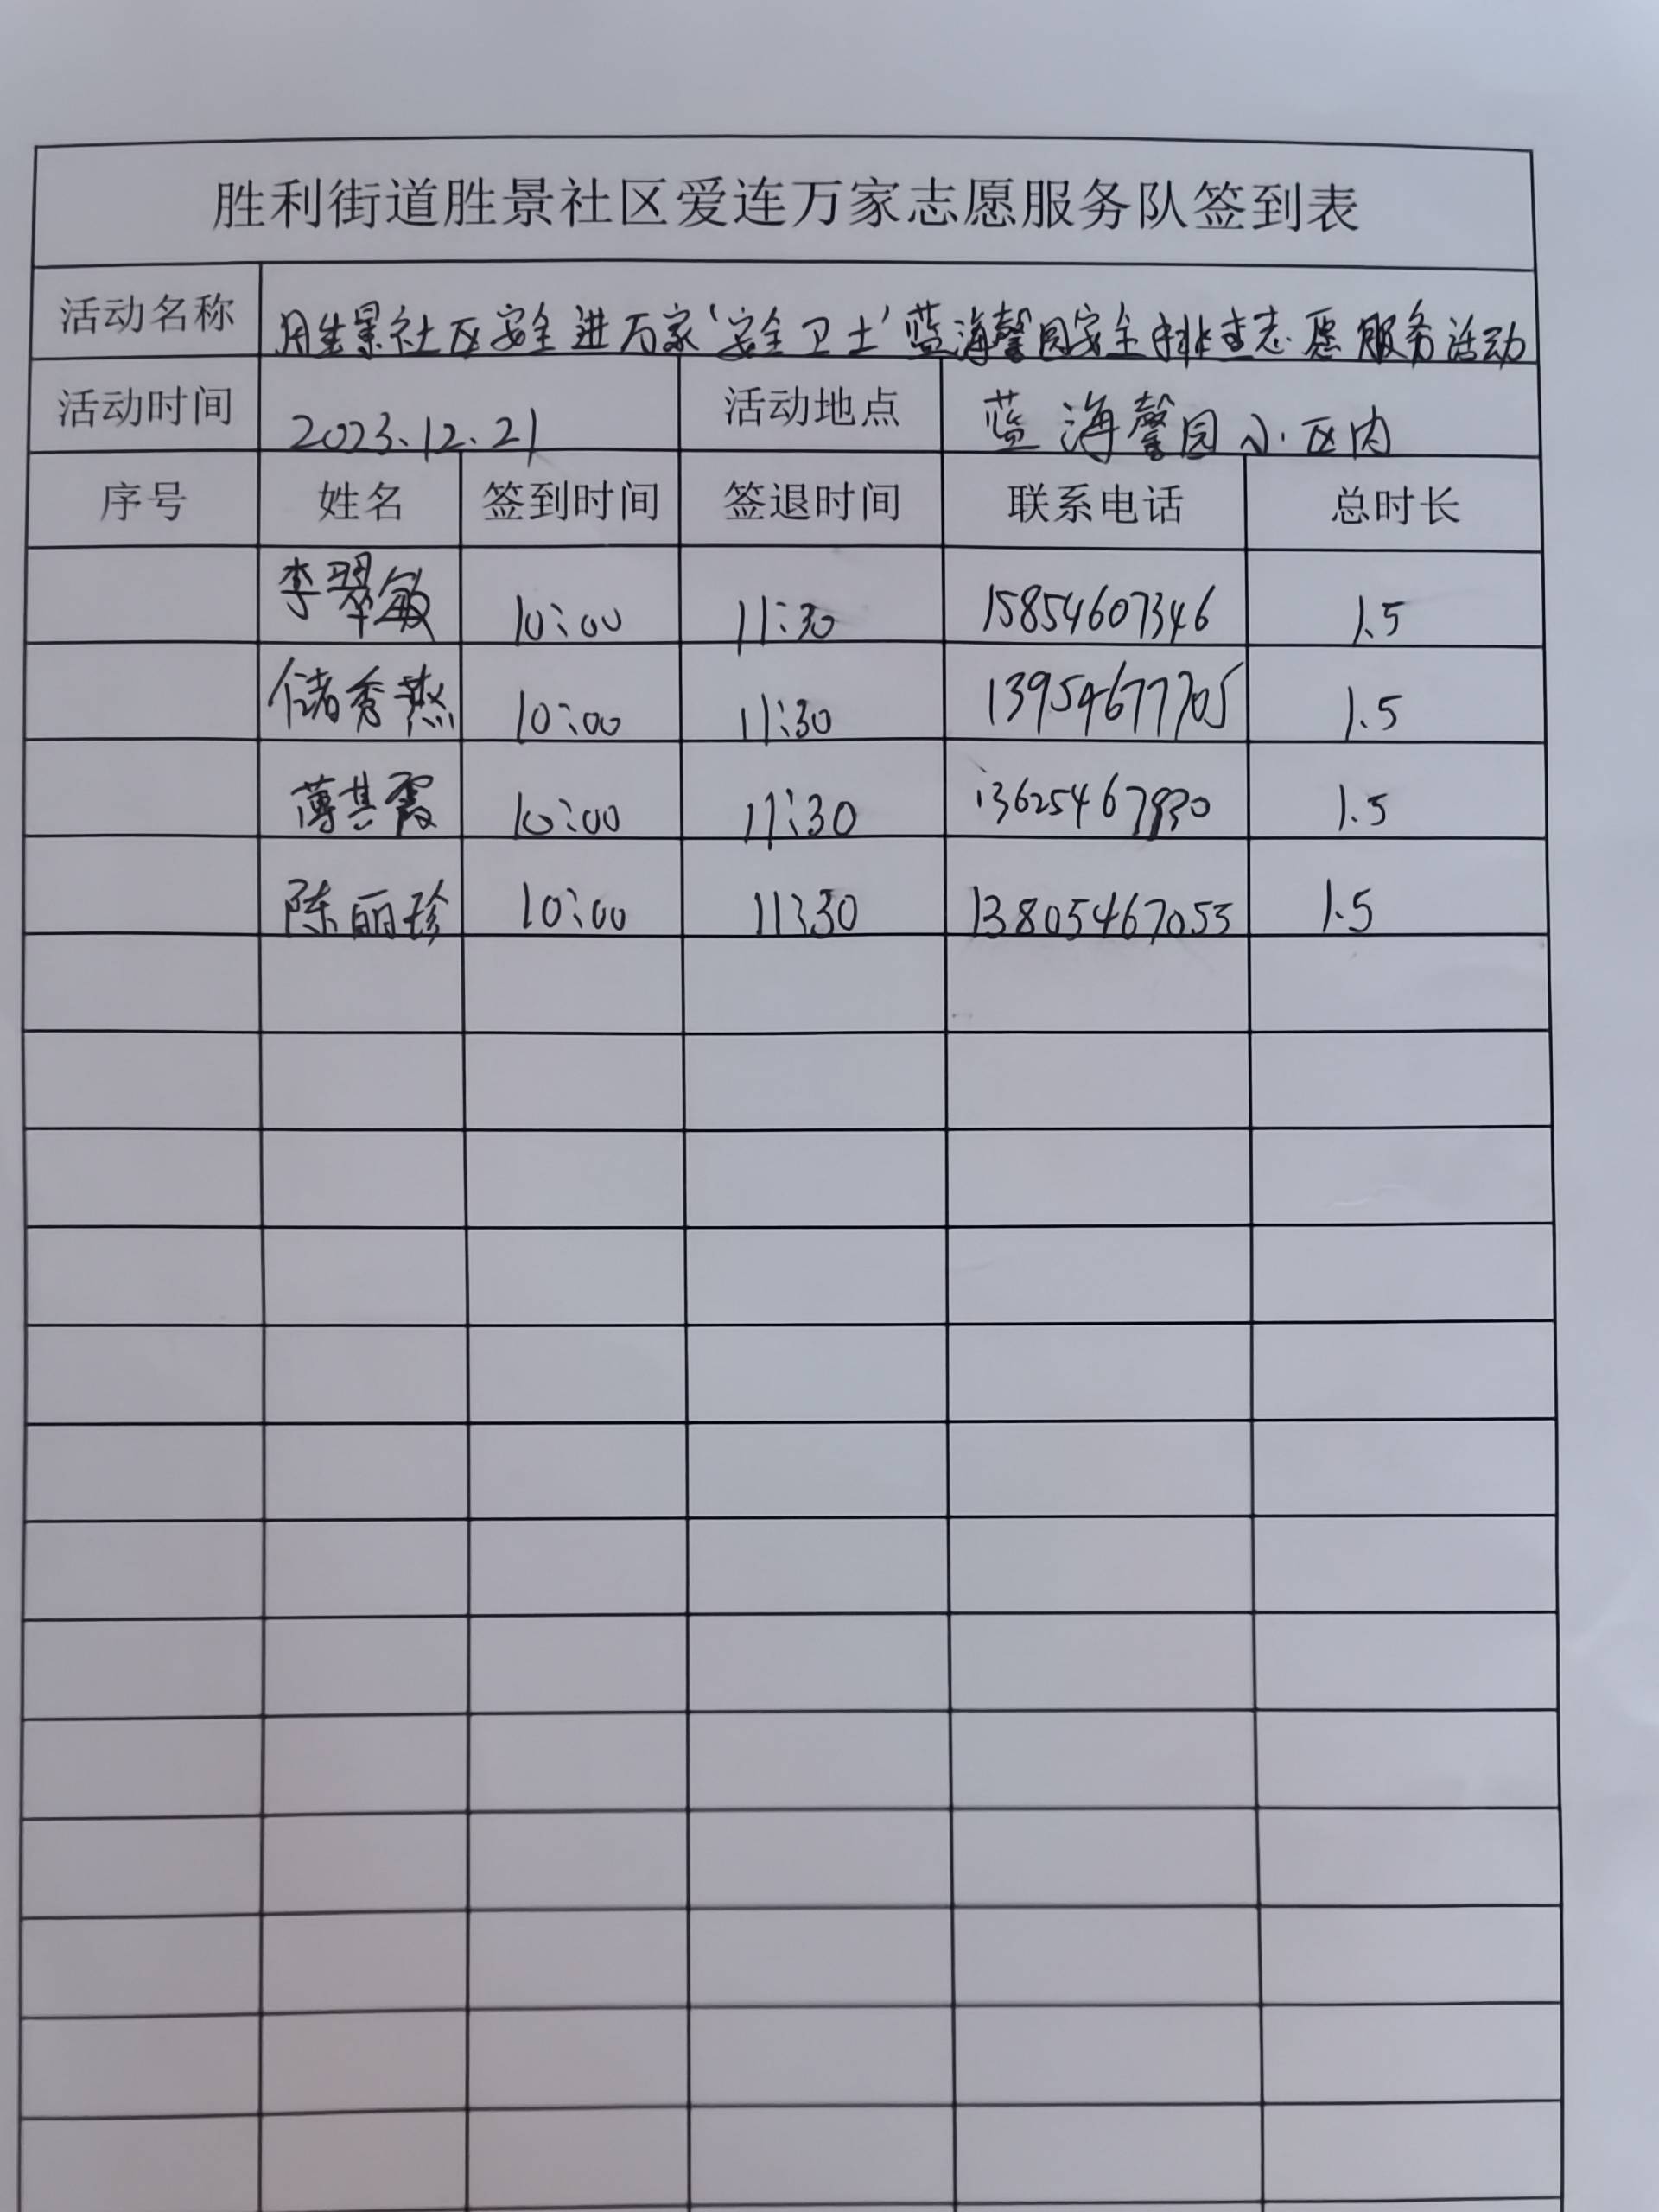 胜利街道胜景社区爱连万家志愿服务队签到表
活动名称 胜景社区安全进万家‘安全卫士’蓝海馨园安全排查志愿服务活动
活动时间 2023.12.21 活动地点 蓝海馨园小区内
序号 姓名 签到时间 签退时间 联系电话 总时长
李翠敏 10:00 11:30 15854607346 1.5
储秀燕 10:00 11:30 13954677705 1.5
薄其霞 10:00 11:30 1.5
陈丽珍 10:00 11:30 13805467053 1.5